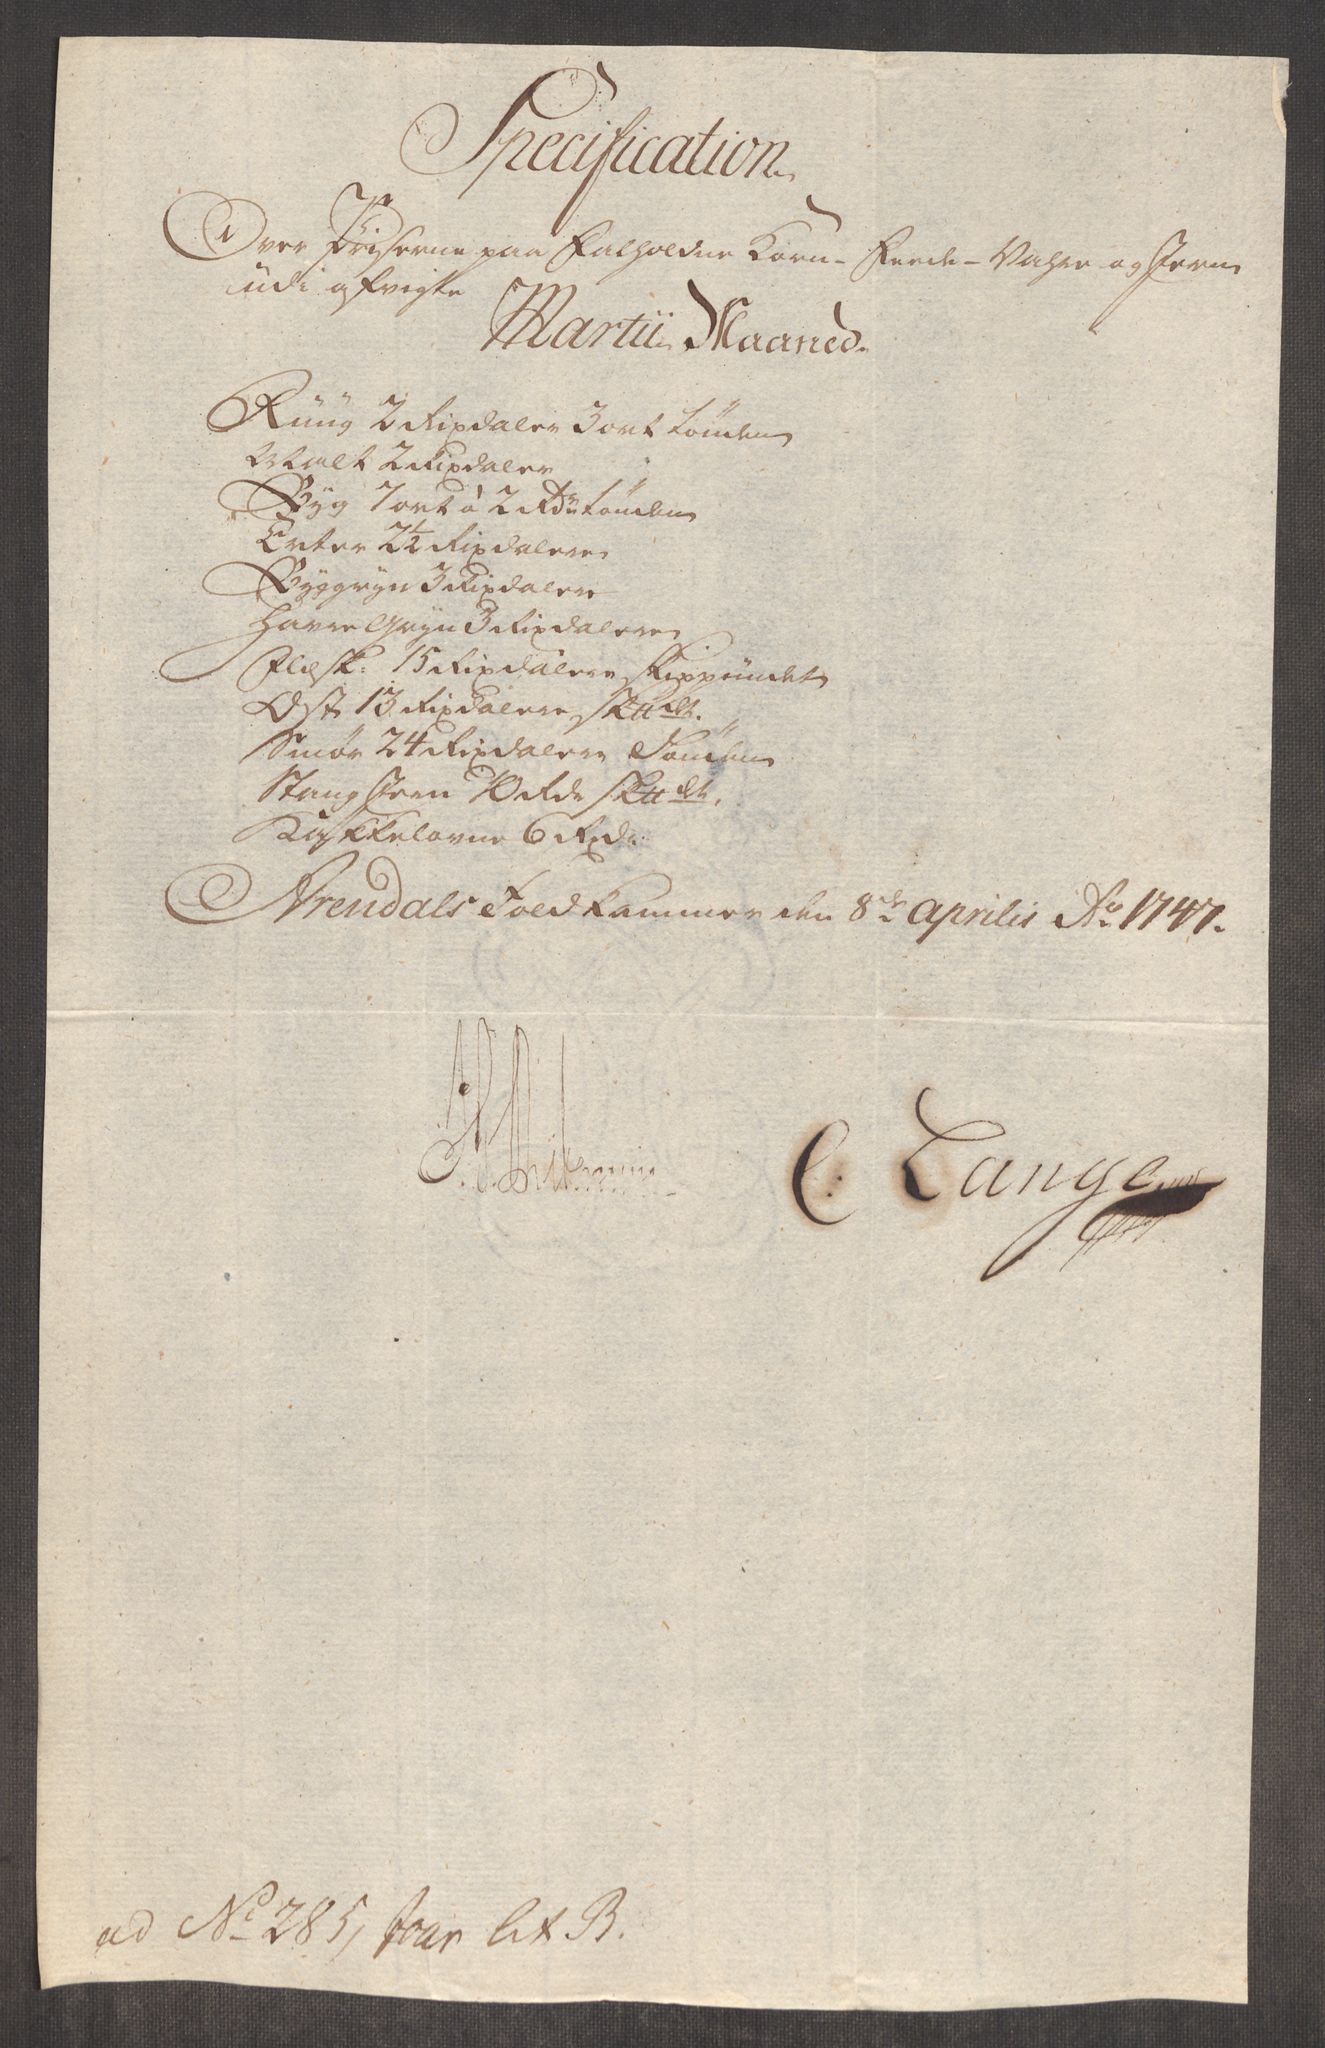 Specification
Over Prisserne paa Falholdne Korn- Feede- Vahre og Jern
udi afvigte
Martii Maaned.
Rüüg 2 Rixdaler 3 ort Tönden
Malt 2 Rixdaler
Byg 7 ort à 2 Rdr Tönden
Erter 2½ Rixdalere
Byggryn 3 Rixdalere
Havre Gryn 3 Rixdalere
Flesk: 15 Rixdalere Skippündet
Ost 13 Rixdalere Sk℔det.
Smör 24 Rixdalere Tönden
Stang Jern 10 Rdr Sk℔det.
Kakkelovne 6 Rxd:
Arendals Told Kammer den 8de Aprilis Ao 1747.
C: Lange
ad No 285, Lit B.